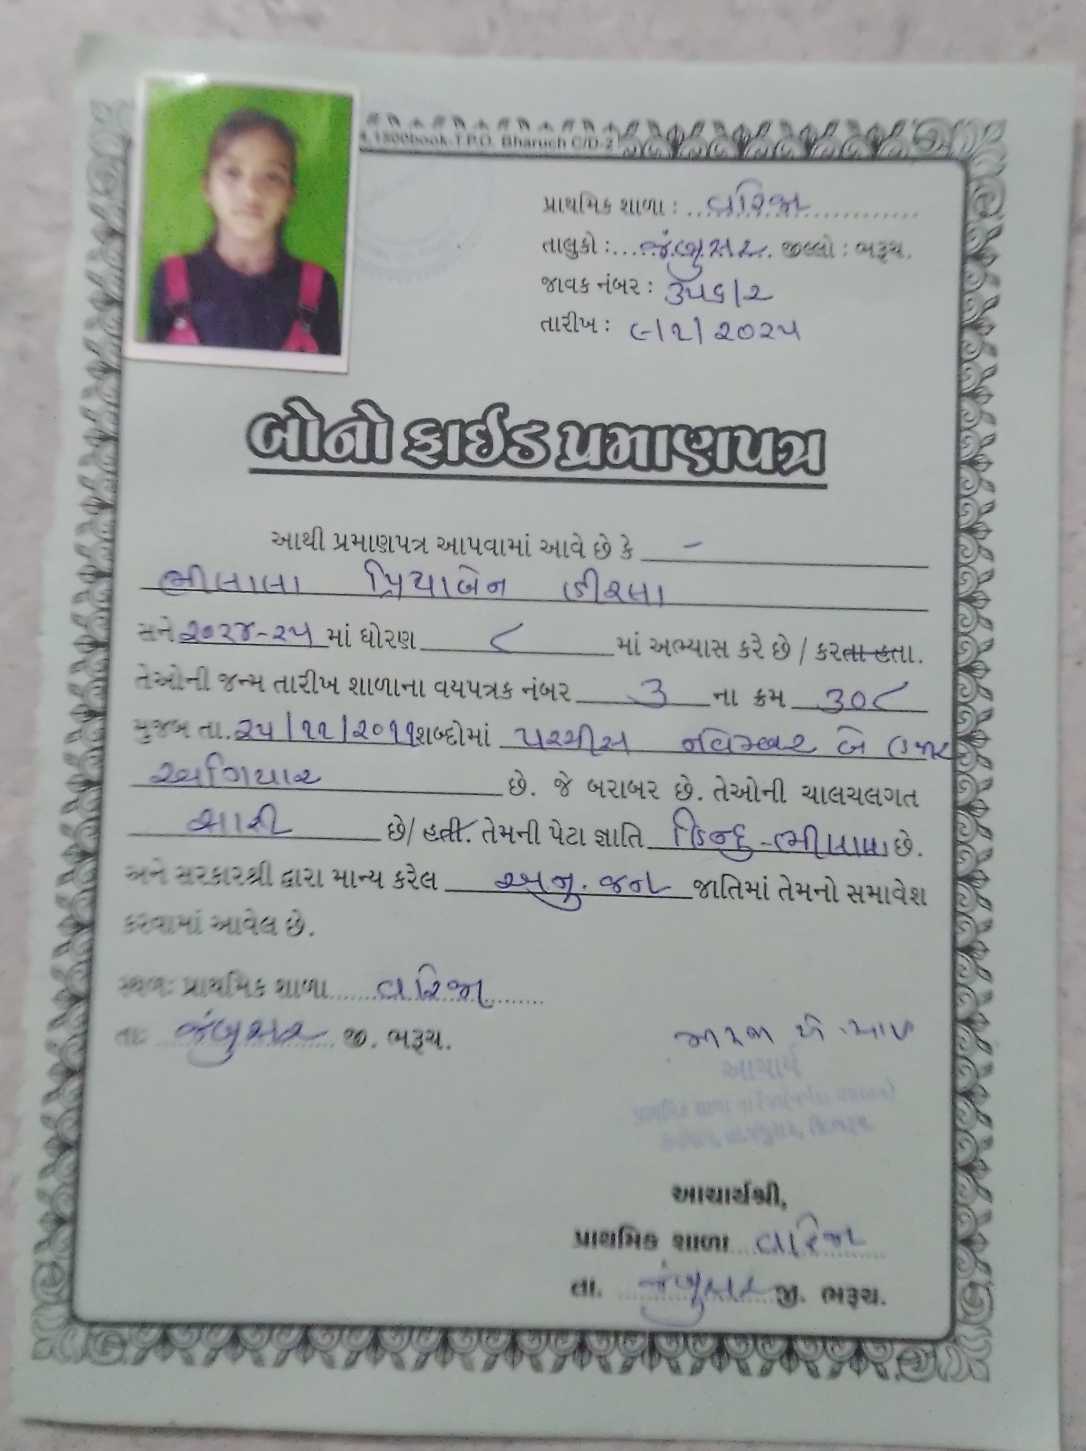 1500book.T.P.O. Bharuch C/D-2
પ્રાથમિક શાળા : વારિજા
તાલુકો :...જંબુસર. જીલ્લો : ભરૂચ.
જાવક નંબર : ૩૫૬/૨
તારીખ : ૯/૧/૨૦૨૫
બોનોફાઈડ પ્રમાણપત્ર
આથી પ્રમાણપત્ર આપવામાં આવે છે કે -
ભીલાલા પ્રિયાબેન
સને ૨૦૨૪-૨૫ માં ધોરણ ૮ માં અભ્યાસ કરે છે / કરતા હતા.
તેઓની જન્મ તારીખ શાળાના વયપત્રક નંબર ૩ ના ક્રમ ૩૦૮
મુજબ તા. ૨૫/૧૧/૨૦૧૧ શબ્દોમાં પચ્ચીસ નવેમ્બર બે હજાર
અગિયાર છે. જે બરાબર છે. તેઓની ચાલચલગત
સારી છે/ હતી. તેમની પેટા જ્ઞાતિ હિન્દુ-ભીલાલા છે.
અને સરકારશ્રી દ્વારા માન્ય કરેલ અનુ. જન જાતિમાં તેમનો સમાવેશ
કરવામાં આવેલ છે.
સ્થળ: પ્રાથમિક શાળા વારિજા
તા: જંબુસર જી. ભરૂચ.
આચાર્ય
આચાર્યશ્રી,
પ્રાથમિક શાળા વારિજા
તા. જંબુસર જી. ભરૂચ.